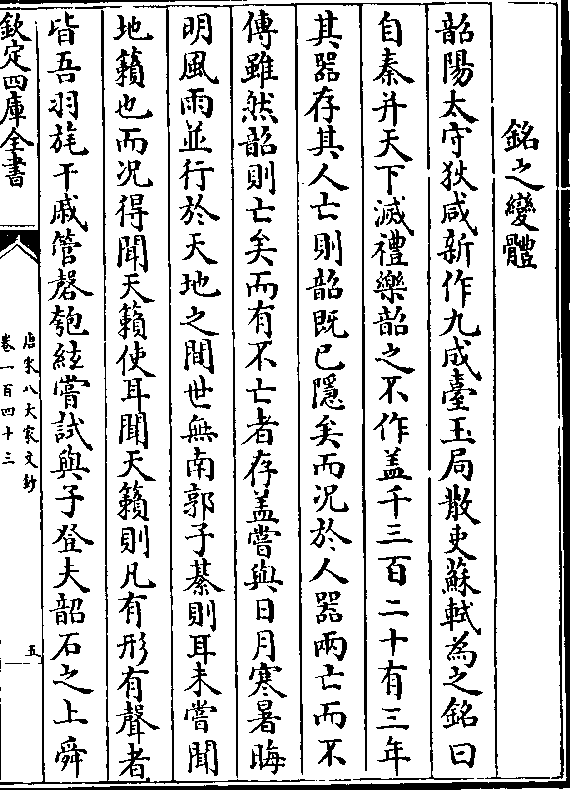 銘之變體
韶陽太守狄咸新作九成臺玉局散吏蘇軾為之銘曰
自秦并天下滅禮樂韶之不作盖千三百二十有三年
其器存其人亡則韶既已隱矣而况於人器兩亡而不
傳雖然韶則亡矣而有不亡者存盖嘗與日月寒暑晦
明風雨並行於天地之間世無南郭子綦則耳未嘗聞
地籟也而况得聞天籟使耳聞天籟則凡有形有聲者
皆吾羽旄干戚管磬匏絃嘗試與子登夫韶石之上舜
欽定四庫全書
唐宋八大家文鈔
卷一百四十三
五